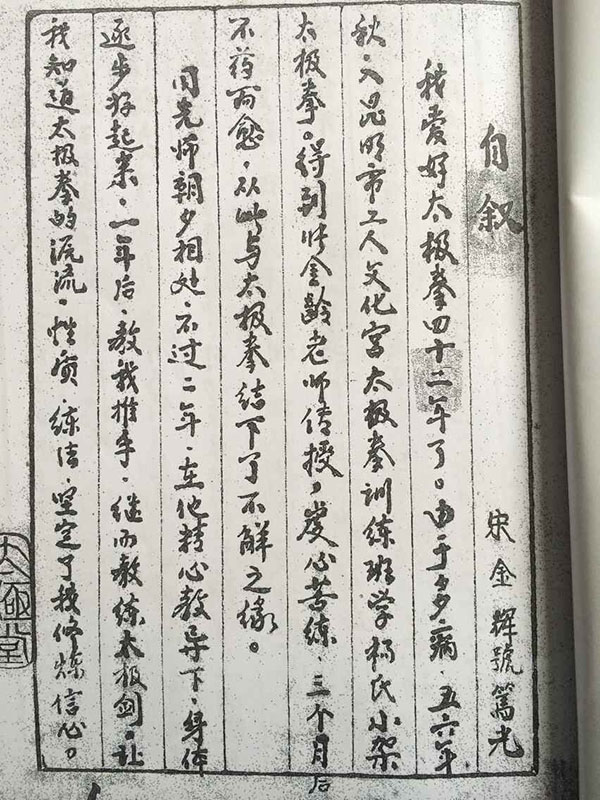 自叙
宋金輝號篤光
我爱好太极拳四十二年了。由于多病，五六年
秋，入昆明市工人文化宫太极拳训练班学杨氏小架
太极拳。得到金齡老师传授，虔心苦练，三个月后
不药而愈，从此与太极拳结下了不解之缘。
同先师朝夕相处，不过二年，在他精心教导下，身体
逐步好起来，一年后，教我推手，继而教练太极剑，让
我知道太极拳的源流，性质，练法，坚定了我修炼信心。
太極堂